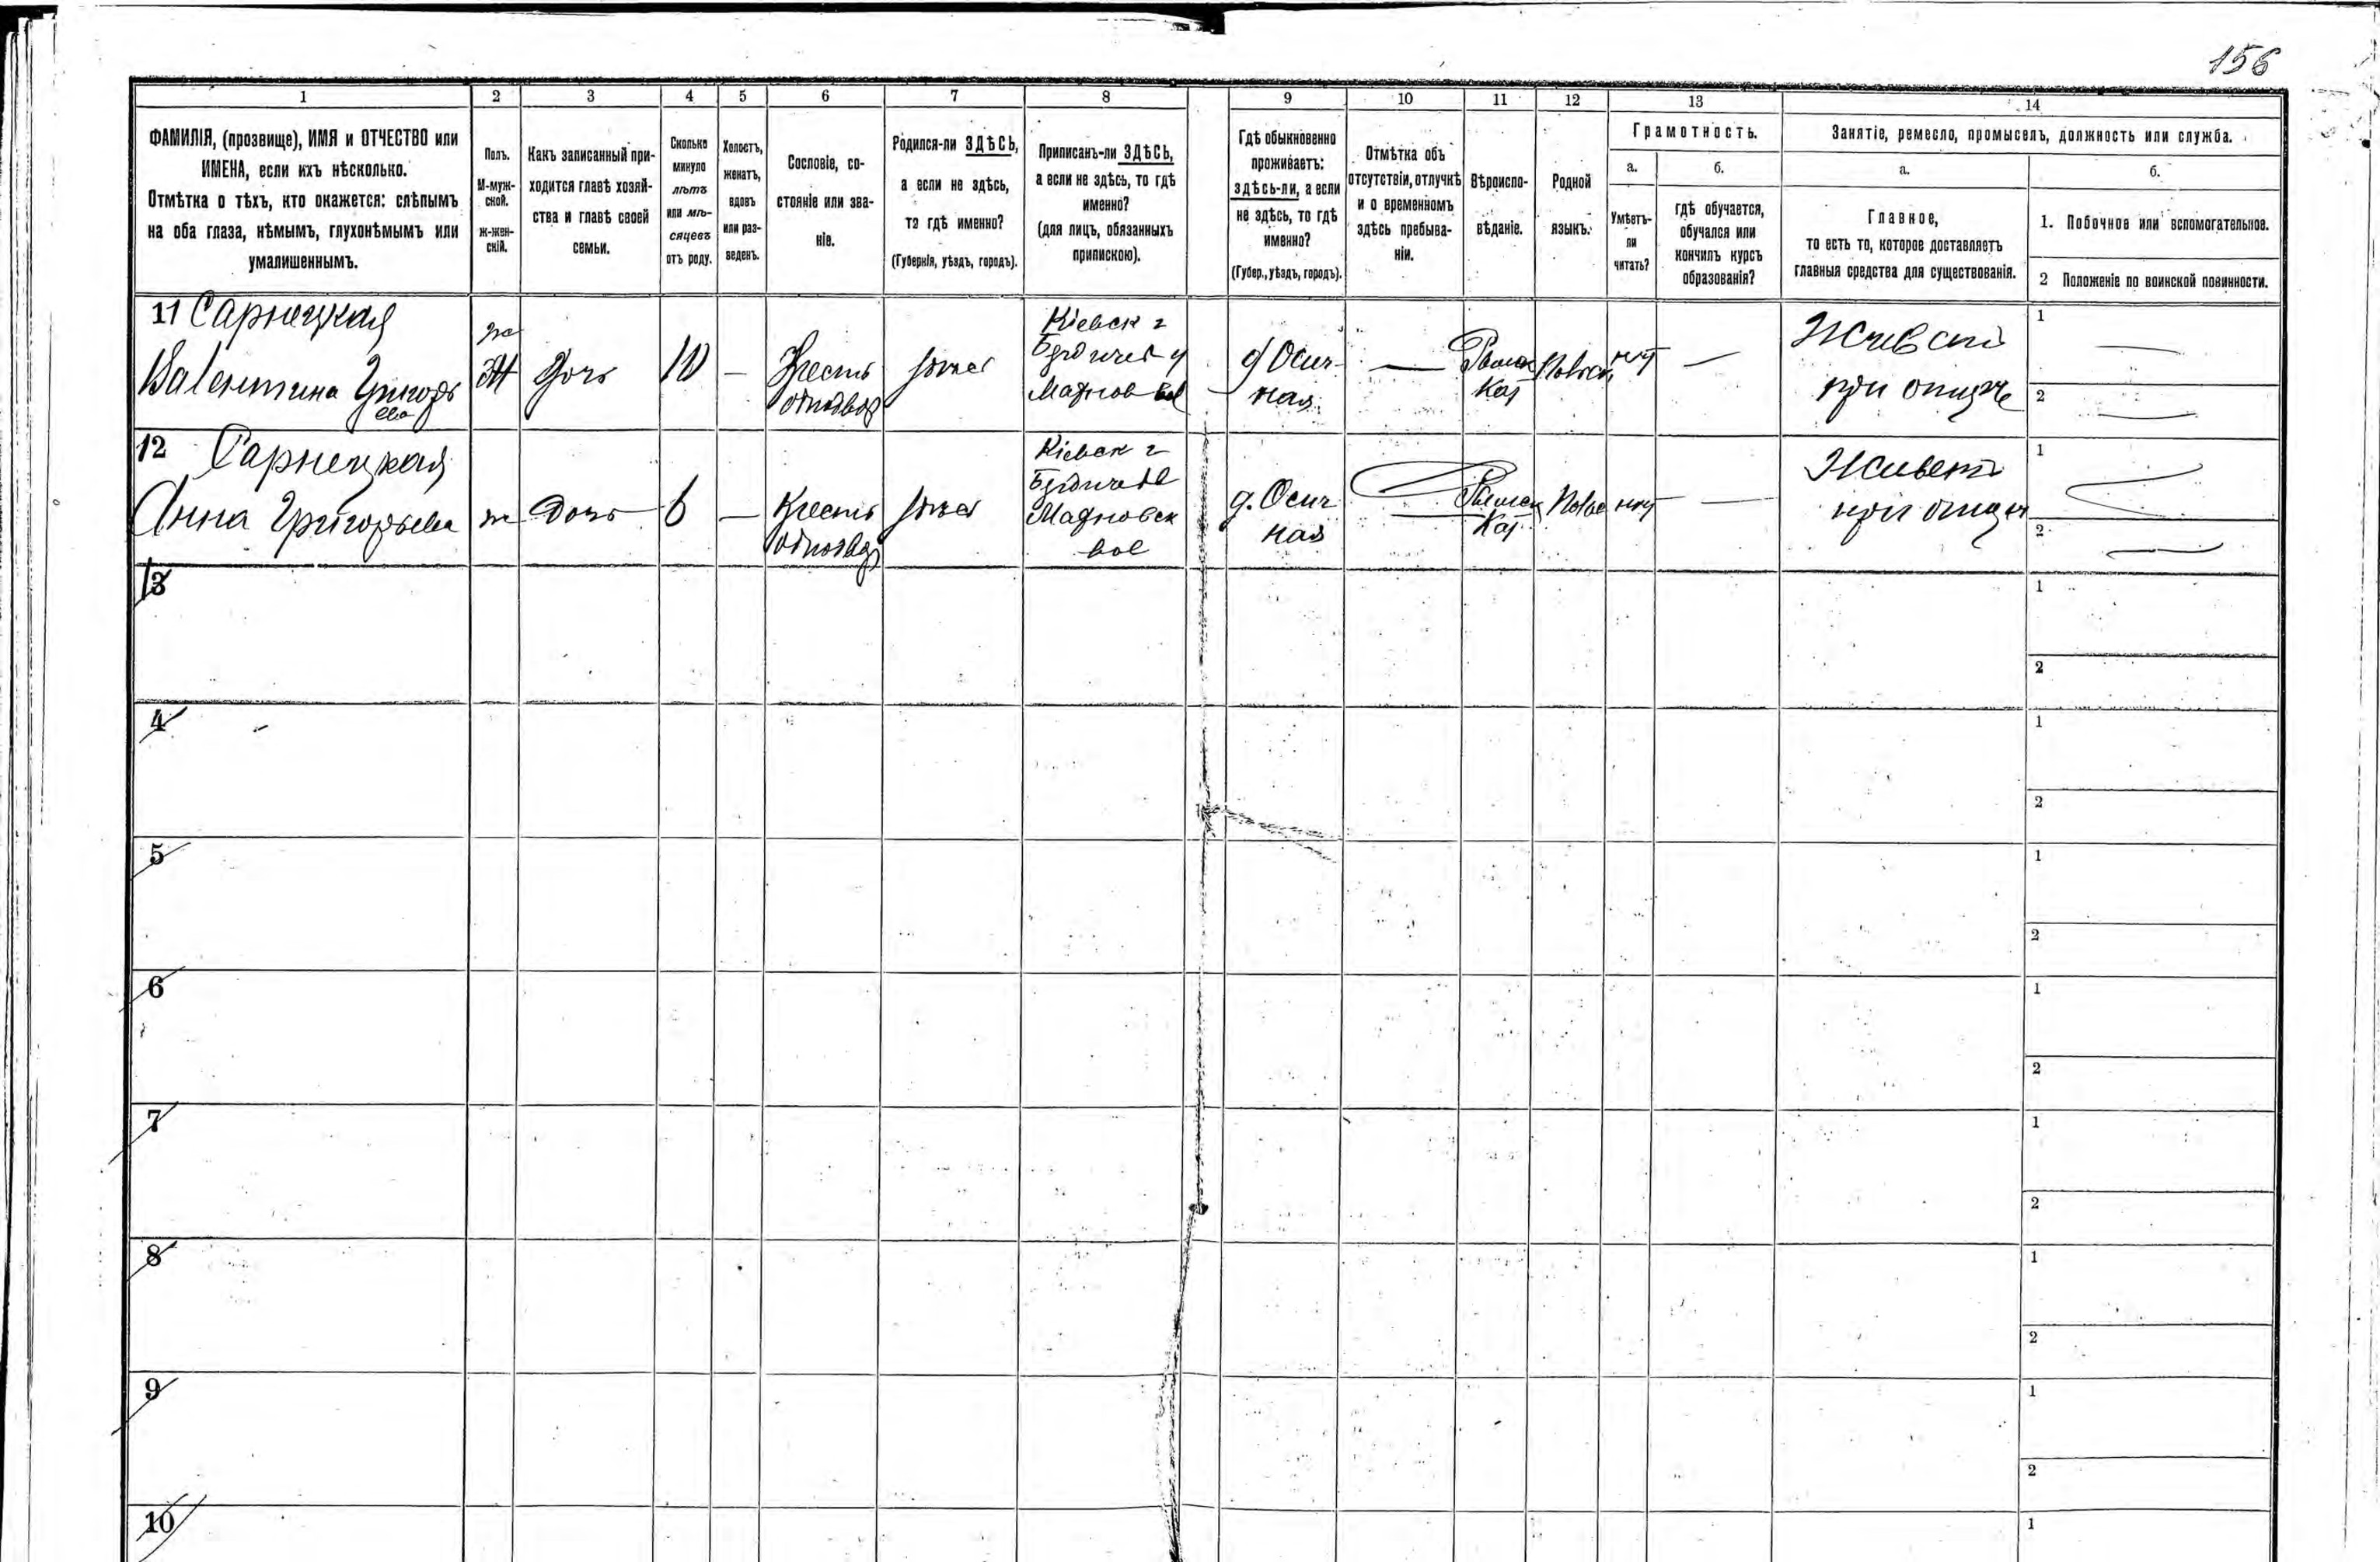 156
1 2 3 4 5 6 7 8 9 10 11 12 13 14
ФАМИЛІЯ, (прозвище), ИМЯ и ОТЧЕСТВО или
ИМЕНА, если ихъ нѣсколько.
Отмѣтка о тѣхъ, кто окажется: слѣпымъ
на оба глаза, нѣмымъ, глухонѣмымъ или
умалишеннымъ.
Полъ.
М-муж-
ской.
Ж-жен-
скій.
Какъ записанный при-
ходится главѣ хозяй-
ства и главѣ своей
семьи.
Сколько
минуло
лѣтъ
или мѣ-
сяцевъ
отъ роду.
Холостъ,
женатъ,
вдовъ
или раз-
веденъ.
Сословіе, со-
стояніе или зва-
ніе.
Родился-ли ЗДѢСЬ,
а если не здѣсь,
то гдѣ именно?
(Губернія, уѣздъ, городъ).
Приписанъ-ли ЗДѢСЬ,
а если не здѣсь, то гдѣ
именно?
(для лицъ, обязанныхъ
припискою).
Гдѣ обыкновенно
проживаетъ:
здѣсь-ли, а если
не здѣсь, то гдѣ
именно?
(Губер., уѣздъ, городъ).
Отмѣтка объ
отсутствіи, отлучкѣ
и о временномъ
здѣсь пребыва-
ніи.
Вѣроиспо-
вѣданіе.
Родной
языкъ.
Грамотность.
а.
Умѣетъ-
ли
читать?
б.
гдѣ обучается,
обучался или
кончилъ курсъ
образованія?
Занятіе, ремесло, промыселъ, должность или служба.
а.
Главное,
то есть то, которое доставляетъ
главныя средства для существованія.
б.
1. Побочное или вспомогательное.
2 Положеніе по воинской повинности.
11 Сарнецкая
Валентина Григорь
ева
ж
Ж
Дочь
10
—
Кресть
однодвор
Кіевск г
Бердичев у
Махнов вол
д Осич-
ная
—
Римск
Кат
Польск
нѣт
—
Живет
при отцѣ
1
2
12 Сарнецкая
Анна Григорьева
ж
Дочь
6
—
Кресть
однодвор
Кіевск г
Бердичев
Махновск
вол
д. Осич
ная
—
Римск
Кат
Польс
нѣт
—
Живетъ
при отцѣ
1
2
13
1
2
4
1
2
5
1
2
6
1
2
7
1
2
8
1
2
9
1
2
10
1